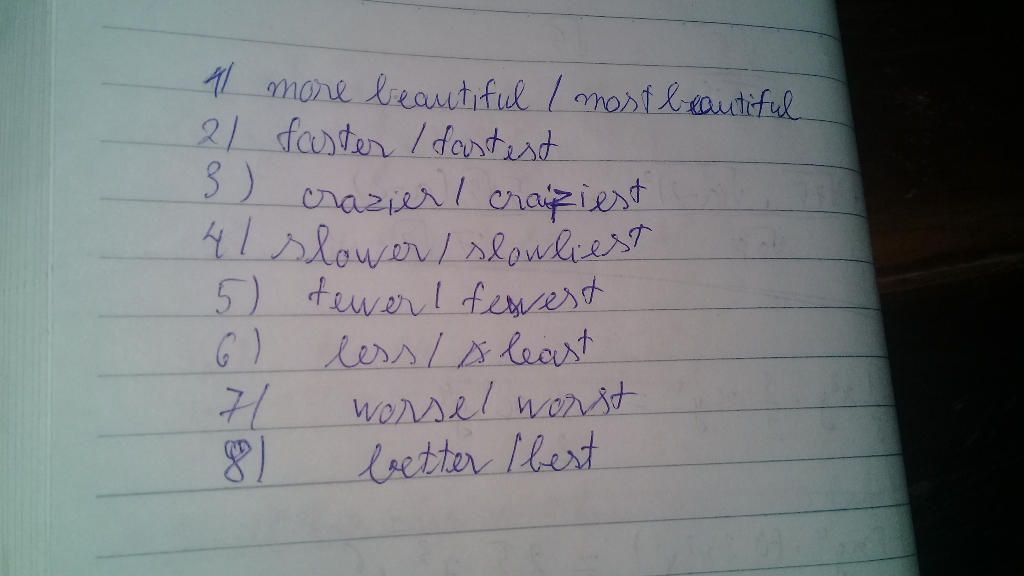 1/ more beautiful / most beautiful
2/ faster / fastest
3) crazier / craziest
4/ slower / slowliest
5) fewer / fewest
6) less / least
7/ worse / worst
8/ better / best